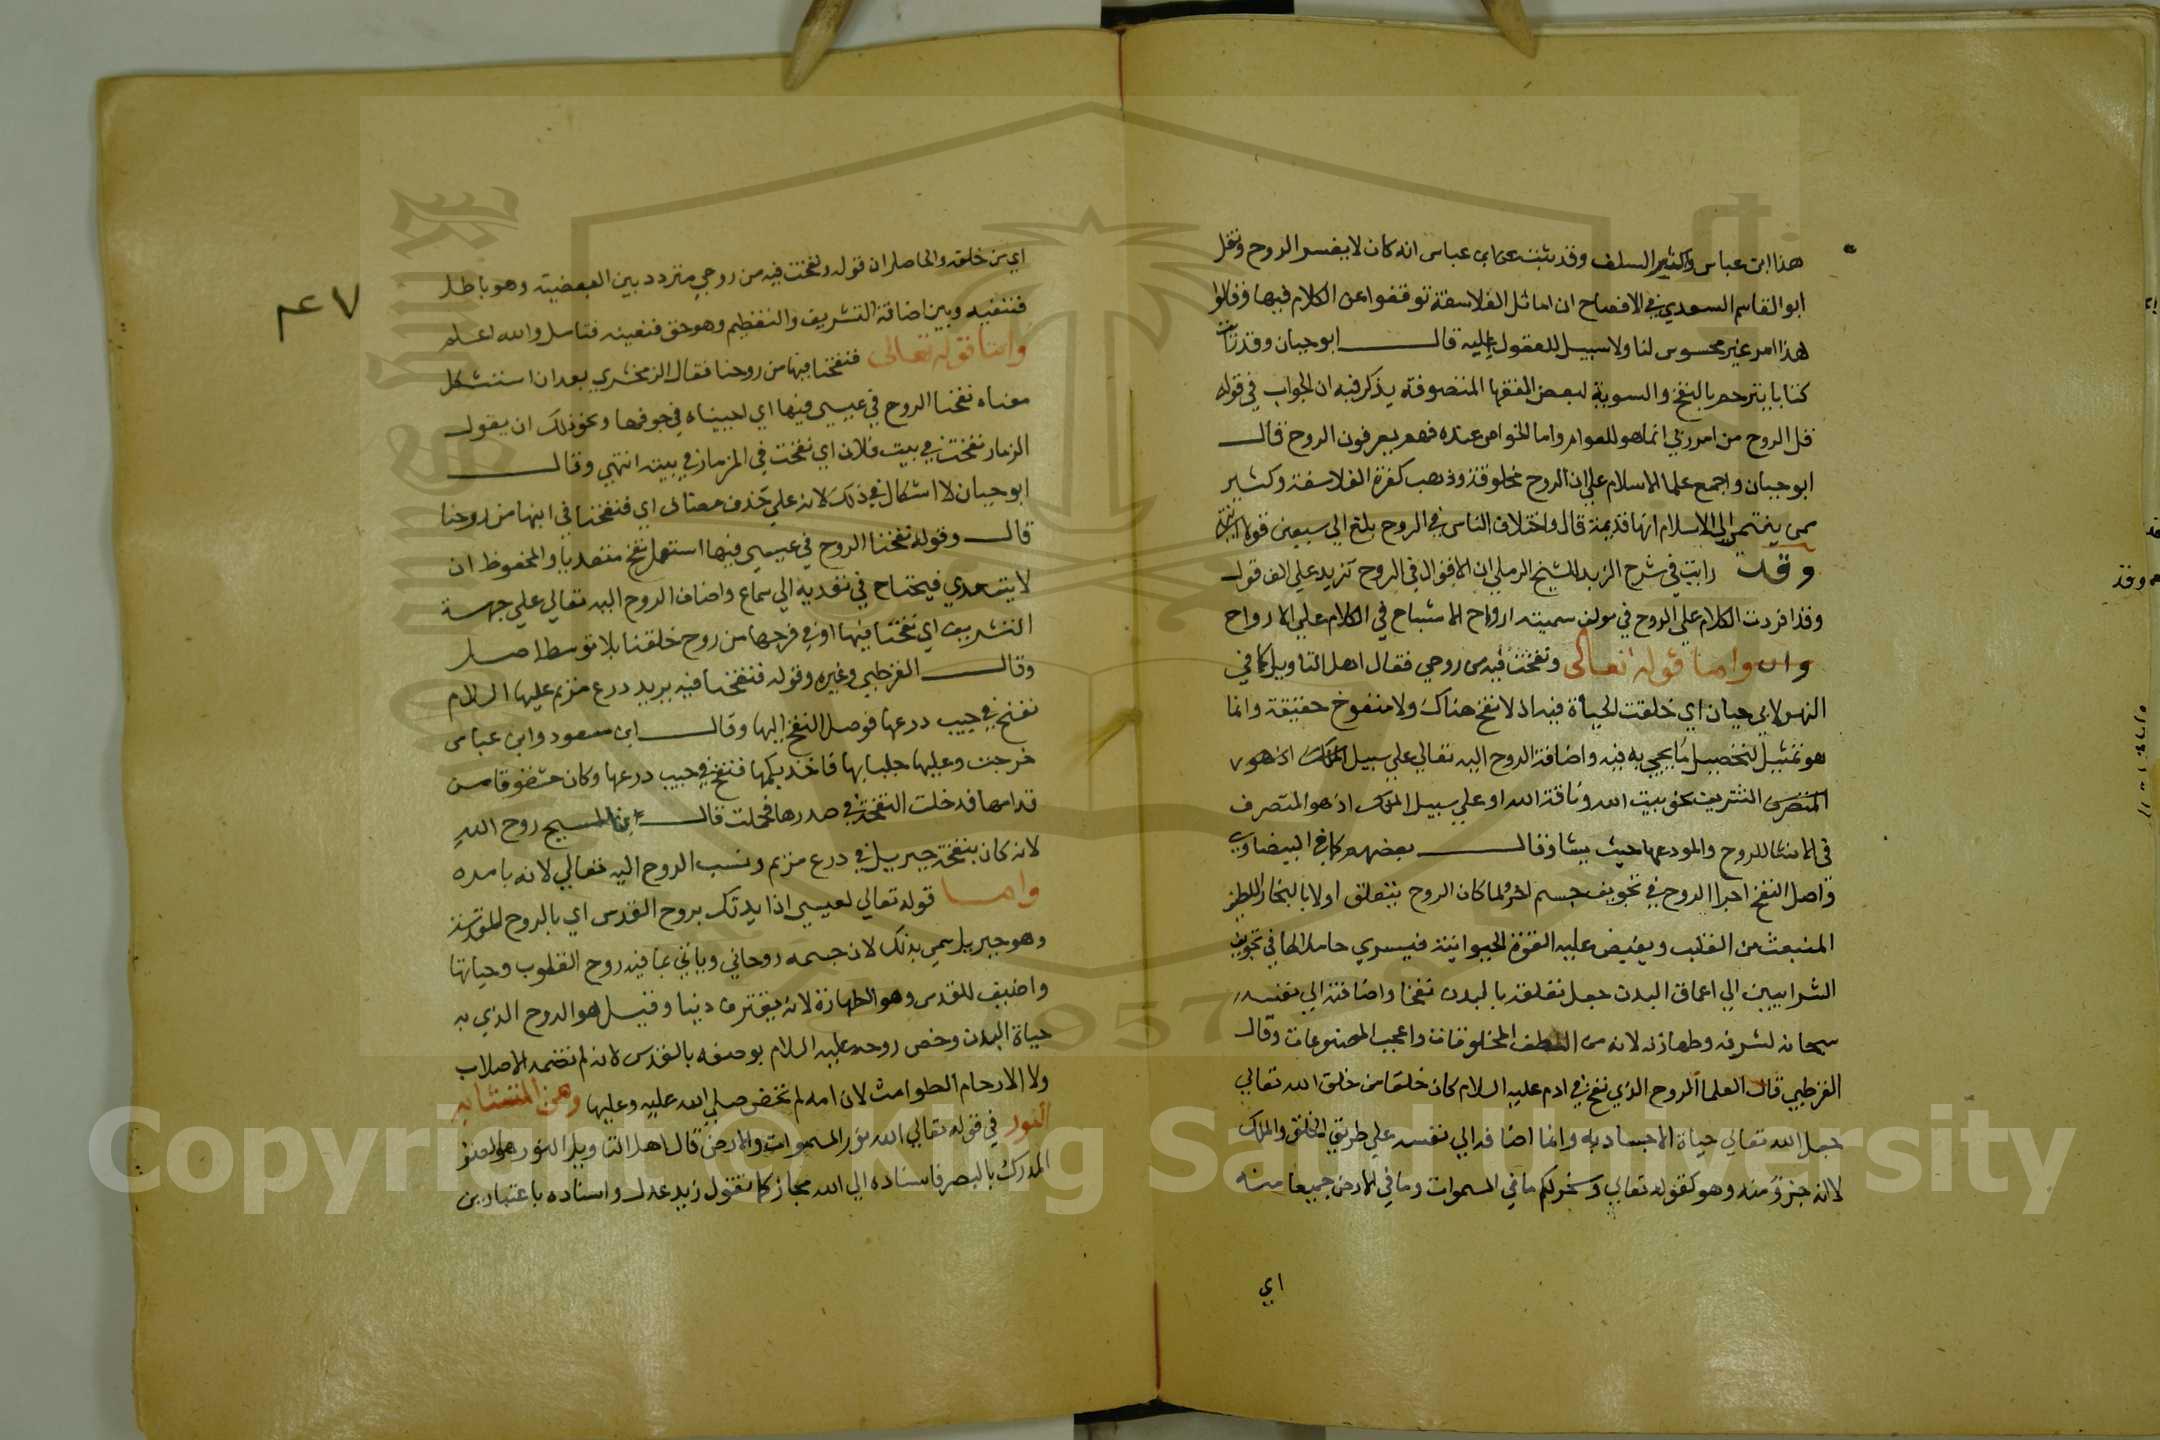 هذا ابن عباس واكثر السلف وقد ثبت عن ابن عباس انه كان لا يفسر الروح ونقل
ابو القاسم السعدي في الافصاح ان اماثل الفلاسفة توقفوا عن الكلام فيها وقالوا
هذا امر غير محسوس لنا ولا سبيل للعقول اليه قال ابو حيان وقد رايت
كتابا يترجم بالنفخ والتسوية لبعض الفقها المتصوفة يذكر فيه ان الجواب في قوله
قل الروح من امر ربي انما هو للعوام واما الخواص عنده فهم يعرفون الروح قال
ابو حيان واجمع علما الاسلام على ان الروح مخلوقة وذهب كفرة الفلاسفة وكثير
ممن ينتمى الى الاسلام انها قديمة قال واختلاف الناس في الروح بلغ الي سبعين قولا انتهى
وقد رايت في شرح الزبد للشيخ الرملي ان الاقوال في الروح تزيد علي الف قول
وقد افردت الكلام علي الروح في مولف سميته ارواح الاشباح في الكلام علي الارواح
واما قوله تعالى ونفخت فيه من روحي فقال اهل التاويل كما في
النهر لابي حيان اي خلقت الحياة فيه اذ لا نفخ هناك ولا منفوخ حقيقة وانما
هو تمثيل لتحصيل ما يحيي به فيه واضافة الروح اليه تعالي علي سبيل الملك اذ هو
المتصرف التشريف نحو بيت الله وناقة الله او علي سبيل الملك اذ هو المتصرف
في الانشا للروح والمودعها حيث يشا وقال بعضهم كما في البيضاوي
واصل النفخ اجرا الروح في تجويف جسم اخر ولما كان الروح يتعلق اولا بالبخار اللطيف
المنبعث من القلب ويفيض عليه القوة الحيوانية فيسري حاملا لها في تجويف
الشرايين الي اعماق البدن جعل تعلقه بالبدن نفخا واضافته الي نفسه
سبحانه لشرفه وطهارته لانه من الطف المخلوقات واعجب المصنوعات وقال
القرطبي قال العلما الروح الذي نفخ في ادم عليه السلام كان خلقا من خلق الله تعالي
جعل الله تعالي حياة الاجساد به وانما اضافه الي نفسه علي طريق الخلق والملك
لا انه جزؤ منه وهو كقوله تعالي وسخر لكم ما في السموات وما في الارض جميعا منه
اي
٧عم
اي من خلقه والحاصل ان قوله ونفخت فيه من روحي متردد بين البعضية وهو باطل
فننفيه وبين اضافة التشريف والتعظيم وهو حق فنعينه فتامل والله اعلم
واما قوله تعالى فنفخنا فيها من روحنا فقال الزمخشري بعد ان استشكل
معناه نفخنا الروح في عيسى فيها اي احييناه في جوفها ونحو ذلك ان يقول
الزمار نفخت في بيت فلان اي نفخت في المزمار في بيته انتهي وقال
ابو حيان لا اشكال في ذلك لانه علي حذف مضاف اي فنفخنا في ابنها من روحنا
قال وقوله نفخنا الروح في عيسى فيها استعمل نفخ متعديا والمحفوظ ان
لا يتعدي فيحتاج في تعديه الي سماع واضاف الروح اليه تعالي علي جهة
التشريف اي نفخنا فيها او في فرجها من روح خلقنا بلا توسط اصل
وقال القرطبي وغيره وقوله فنفخنا فيه يريد درع مريم عليها السلام
نفخ في جيب درعها فوصل النفخ اليها وقال ابن مسعود وابن عباس
خرجت وعليها جلبابها فاخذ بكمها فنفخ في جيب درعها وكان مشقوقا من
قدامها فدخلت النفخة في صدرها فحملت قال المسيح روح الله
لانه كان بنفخة جبريل في درع مريم ونسب الروح اليه تعالي لانه بامره
واما قوله تعالي لعيسى اذ ايدتك بروح القدس اي بالروح المقدسة
وهو جبريل سمي بذلك لان جسمه روحاني وياتي بما فيه روح القلوب وحياتها
واضيف للقدس وهو الطهارة لانه لم يقترف ذنبا وقيل هو الروح الذي به
حياة البدن وخص روحه عليه السلام بوصفه بالقدس لانه لم تضمه الاصلاب
ولا الارحام الطوامث لان امه لم تحض صلي الله عليه وعليها ومن المتشابه
النور في قوله تعالي الله نور السموات والارض قال اهل التاويل النور هو الضوء
المدرك بالبصر فاسناده الي الله مجاز كما تقول زيد عدل واسناده باعتبارين